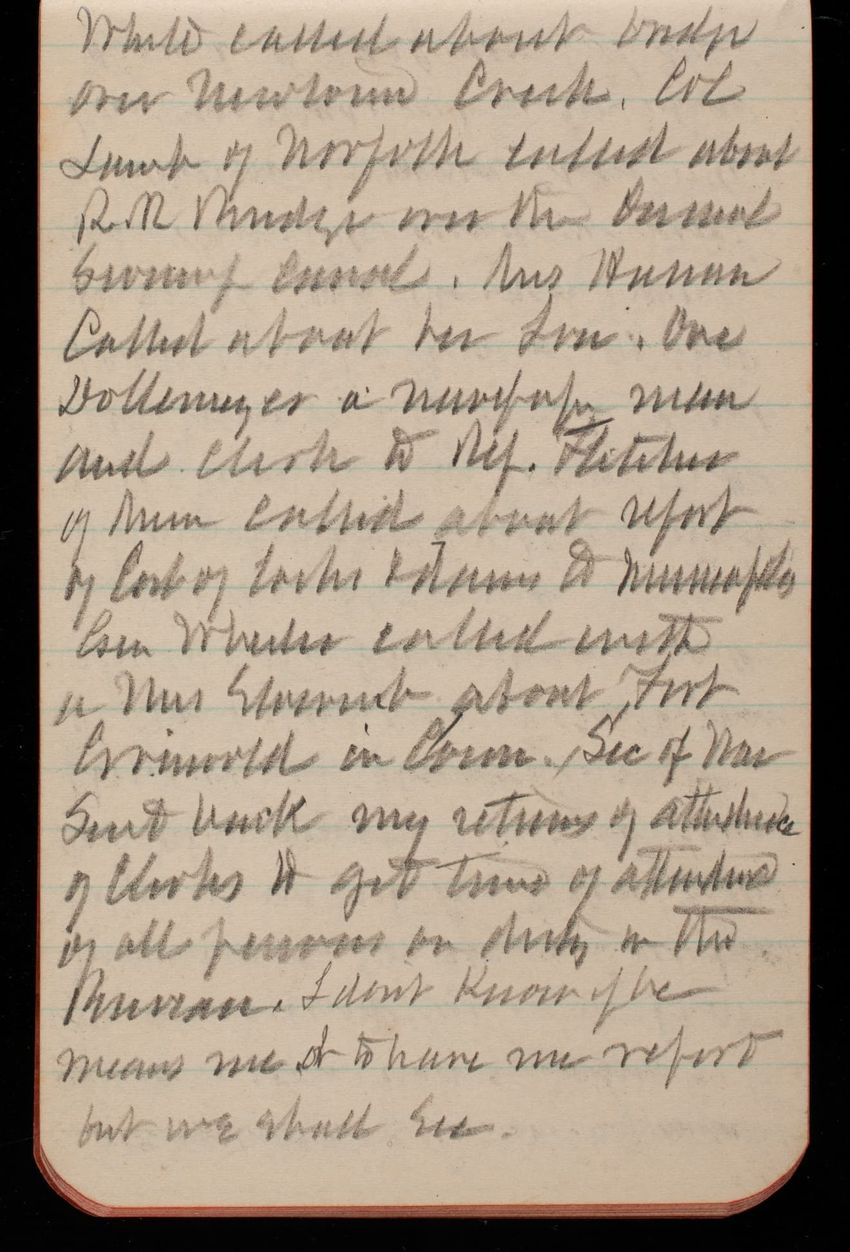 White called about bridge
over Newtown Creek. Col
Lamb of Norfolk called about
R.R Bridge over the Dismal
Swamp Canal. Mrs
Called about her Son. One
Dollenmayer a newspaper man
and clerk to Rep. Fletcher
of Minn called about report
of Cost of Locks & dams to Minneapolis
Gen Wheeler called with
a Mrs Slocomb about Fort
Griswold in Conn. Sec of War
Sent back my returns of attendance
of Clerks to get time of attendance
of all persons on duty in the
Bureau. I dont Know if he
means me or to have me report
but we shall See.